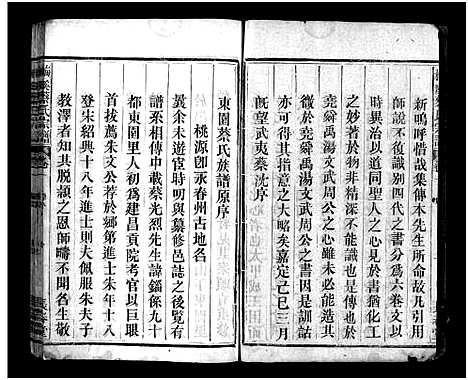 新嗚呼惜哉集傳本先生所命故凡引用
師說不復識別四代之書分爲六卷文以
時異治以道同聖人之心見於書猶化工
之妙著於物非精深不能識也是傳也於
堯舜禹湯文武周公之心雖未能造其
微於堯舜禹湯文武周公之書因是訓詁
亦可得其指意之大略矣嘉定己巳三月
旣望武夷蔡沈序
東園蔡氏族譜原序
桃源卽永春州古地名
曩余未達時曾與纂修邑誌之後覽有
譜系相傳中載蔡光烈先生諱鎦係九十
都東園里人初爲建昌貢院考官以巨眼
首拔羣朱文公荐於鄉第進士朱年十八
登宋紹興十八年進士則夫佩服朱夫子
教澤者知其脫顙之恩師疇不聞名生敬